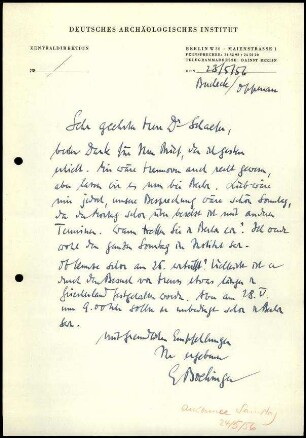 DEUTSCHES ARCHÄOLOGISCHES INSTITUT
ZENTRALDIREKTION
BERLIN W 30 · MAIENSTRASSE 1
TELEGRAMMADRESSE: DAINST BERLIN
DEN 23/5/56
Oppenau
Sehr geehrter Herr Dr Schaefer,
besten Dank für Ihren Brief, den ich gestern
erhielt. Mir wäre Hannover auch recht gewesen,
aber lassen wir es nun bei Berlin. Lieb wäre
mir jedoch, unsere Besprechung wäre schon Sonntag,
da der Montag schon sehr besetzt ist mit anderen
Terminen. Wann treffen Sie in Berlin ein? Ich werde
wohl den ganzen Sonntag im Institut sein.
Ob Kunze schon am 26. eintrifft? Vielleicht ist er
durch den Besuch von Heuss etwas länger in
Griechenland festgehalten worden. Aber am 28. V.
um 9.00 Uhr sollte er unbedingt schon in Berlin
sein.
Mit freundlichen Empfehlungen
Ihr ergebener
E Boehringer
24/5/56